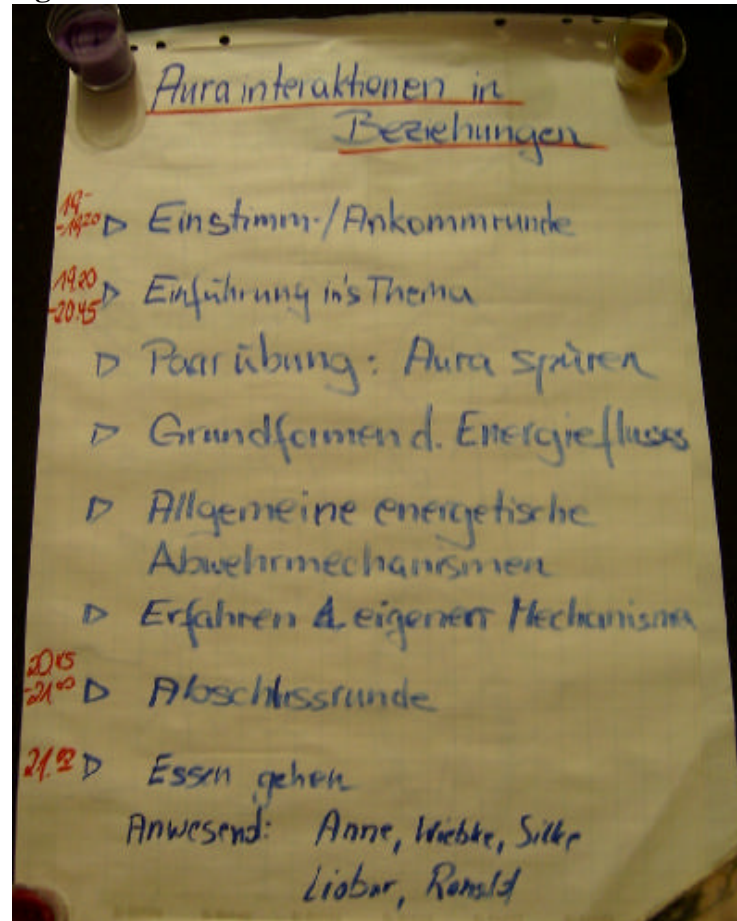 Aurainteraktionen in
Beziehungen
19- -19²⁰ ▷ Einstimm-/Ankommrunde
19.20 -20.45 ▷ Einführung in's Thema
▷ Paarübung: Aura spüren
▷ Grundformen d. Energieflusses
▷ Allgemeine energetische
Abwehrmechanismen
▷ Erfahren eigener Mechanismen
20.45 -21⁰⁰ ▷ Abschlussrunde
21.⁰⁰ ▷ Essen gehen
Anwesend: Anne, Wiebke, Silke
Ronald